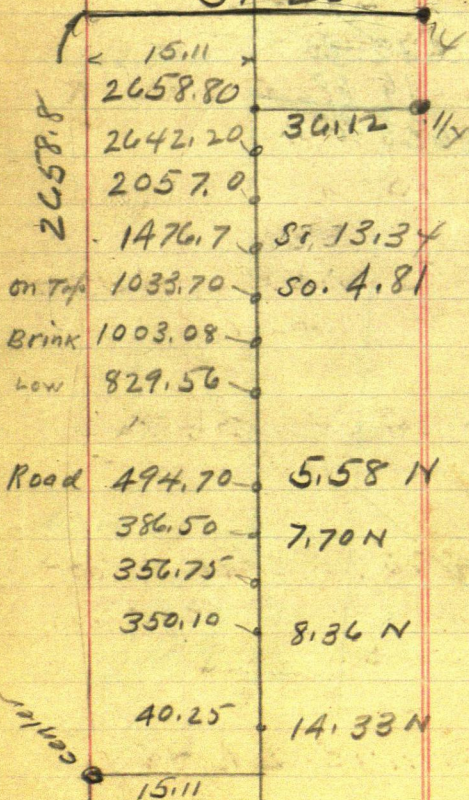 15.11
2658.80
2658.8
36.12 1/4
2642.20
2057.0
1476.7 So. 13.34
on Top 1033.70 so. 4.81
Brink 1003.08
Low 829.56
Road 494.70 5.58 N
386.50 7.70 N
356.75
350.10 8.36 N
40.25 14.33 N
center
15.11